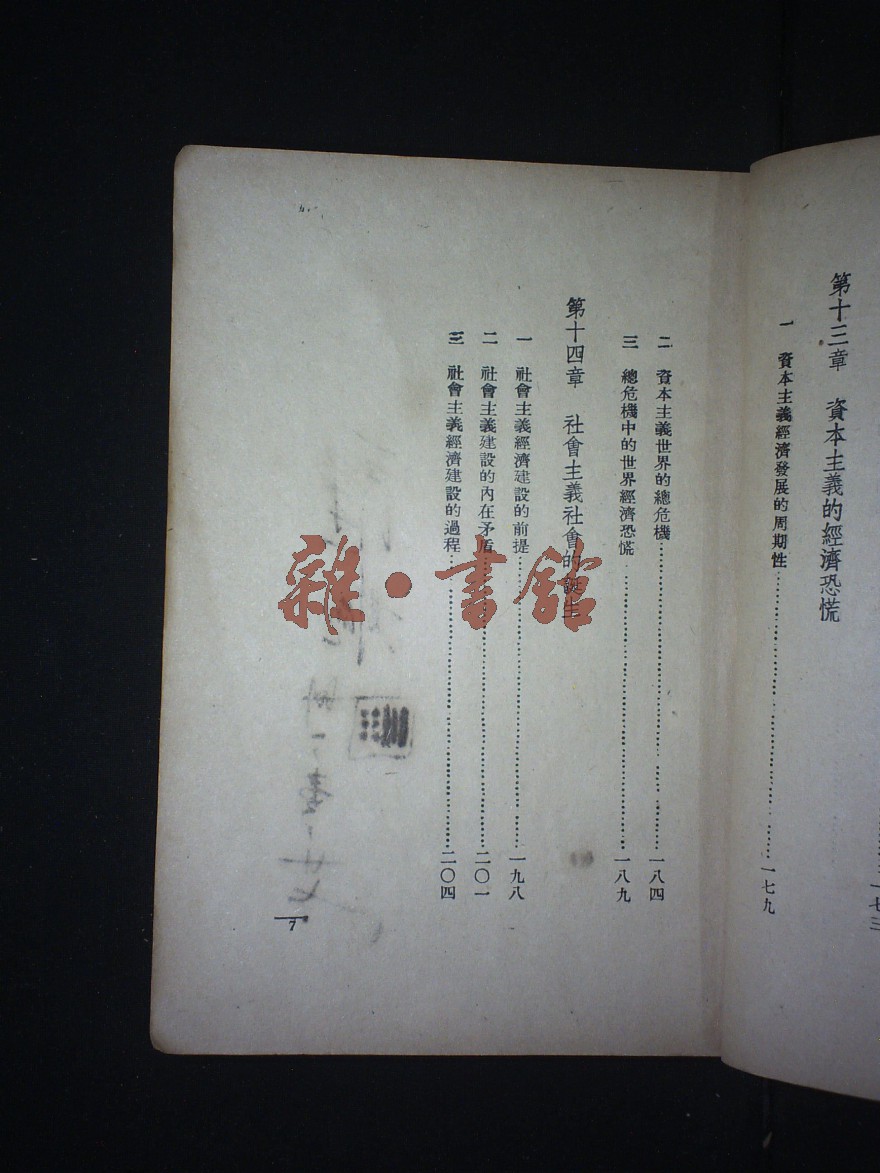 一七三
第十三章　資本主義的經濟恐慌
一　資本主義經濟發展的周期性…………一七九
二　資本主義世界的總危機…………一八四
三　總危機中的世界經濟恐慌…………一八九
第十四章　社會主義社會的誕生
一　社會主義經濟建設的前提…………一九八
二　社會主義建設的內在矛盾…………二〇一
三　社會主義經濟建設的過程…………二〇四
7
雜·書館